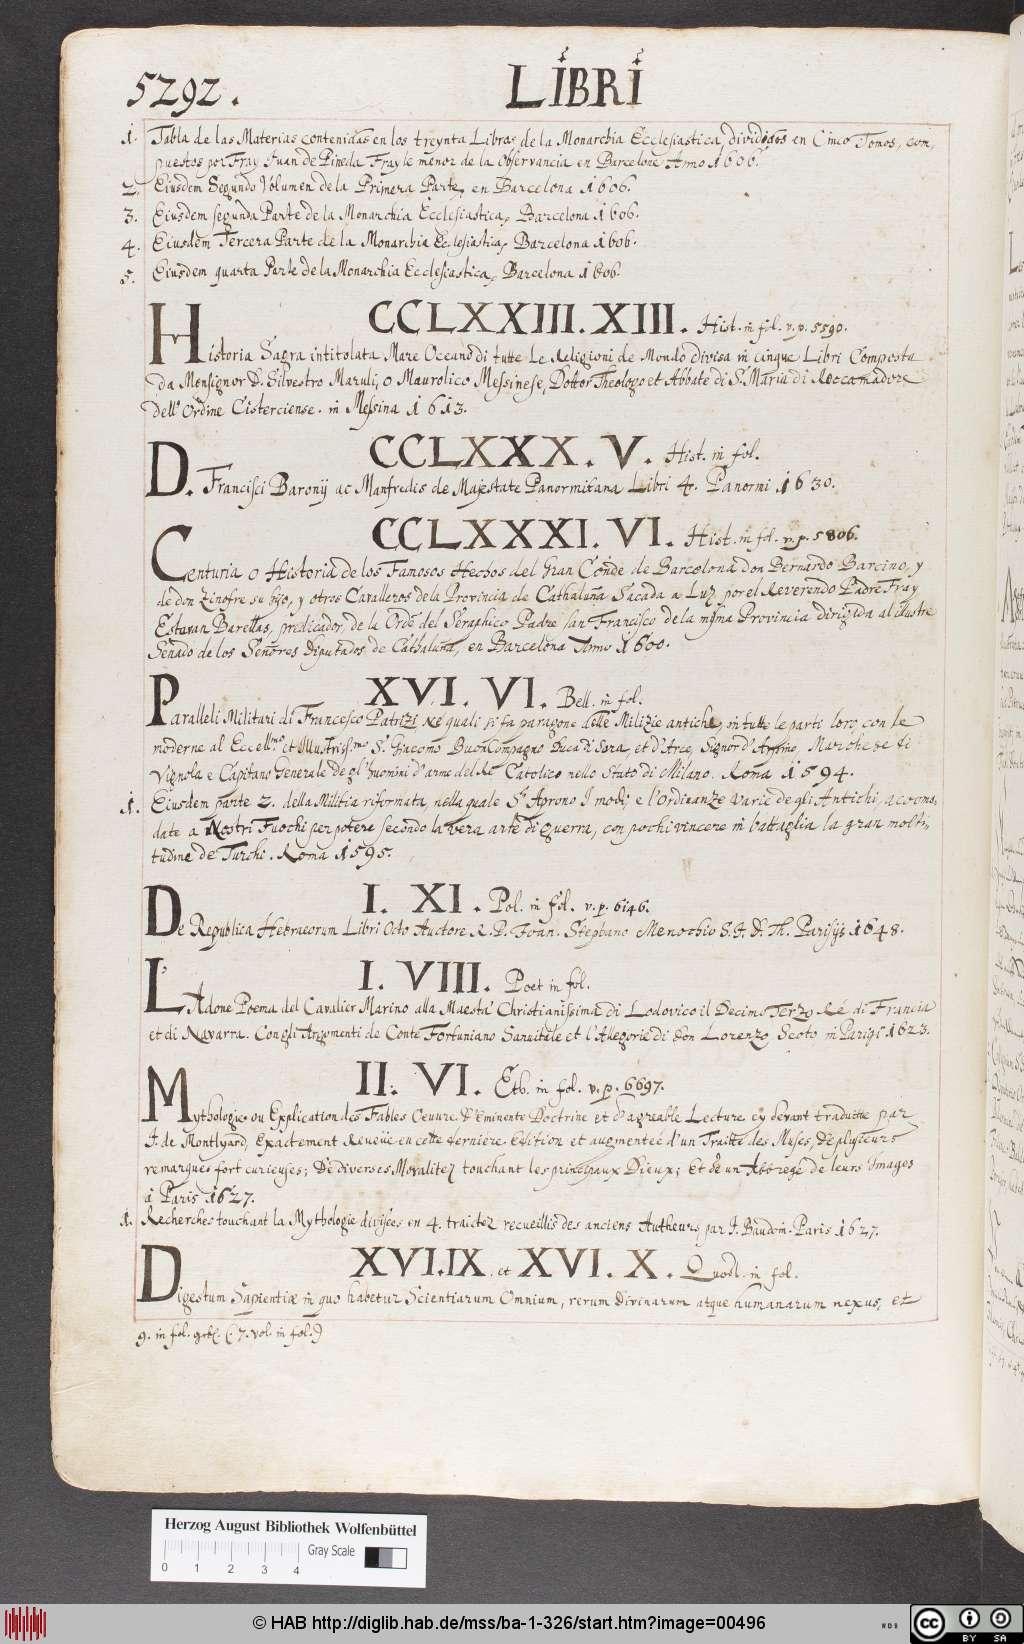 5292. LIBRI
1. Tabla de las Materias contenidas en los treynta Libros de la Monarchia Ecclesiastica, divididos en Cinco Tomos, com,
puestos por Fray Juan de Pineda Frayle menor de la Observancia en Barcelone Anno 1606.
2. Eiusdem Segundo Volumen de la Primera Parte, en Barcelona 1606.
3. Eiusdem segunda Parte de la Monarchia Ecclesiastica, Barcelona 1606.
4. Eiusdem Tercera Parte de la Monarchia Ecclesiastica, Barcelona 1606.
5. Eiusdem quarta Parte de la Monarchia Ecclesiastica, Barcelona 1606.
CCLXXIII. XIII. Hist. in fol. v. p. 5590.
Historia Sagra intitolata Mare Oceano di tutte le Religioni de Mondo divisa in cinque Libri Composta
da Monsignor D. Silvestro Maruli, o Maurolico Messinese, Dottor Theologo et Abbate di S. Maria di Roccamadore
dell' Ordine Cisterciense. in Messina 1613.
CCLXXX. V. Hist. in fol.
D. Francisci Baronij ac Manfredis de Majestate Panormitana Libri 4. Panormi. 1630.
CCLXXXI. VI. Hist. in fol. v. p. 5806.
Centuria o Historia de los Famosos Hechos del Gran Conde de Barcelona don Bernardo Barcino, y
de don Zinofre su hijo, y otros Cavalleros de la Provincia de Cathaluña Sacada a Luz por el Reverendo Padre Fray
Estevan Barellas, predicador, de la Orde del Seraphico Padre san Francisco de la misma Provincia dirigida al illustre
Senado de los Señores Diputados de Cathaluña, en Barcelona Anno 1600.
XVI. VI. Bell. in fol.
Paralleli Militari di Francesco Patrizi ne' quali si fa paragone delle Milizie antiche, in tutte le parti loro, con le
moderne al Eccell.mo et Illustriss.mo S.r Giacomo Buoncompagno Duca di Sora, et d'Arce, Signor d'Arpino, Marchese di
Vignola e Capitano Generale de gl' huomini d'arme del Re Catolico nello Stato di Milano. Roma 1594.
1. Eiusdem parte 2. della Militia riformata, nella quale S' Aprono I modi, e l'Ordinanze varie de gli Antichi, accomo,
date a Nostri Fuochi per potere secondo la vera arte di guerra, con pochi vincere in battaglia la gran molti,
tudine de Turchi. Roma 1595.
I. XI. Pol. in fol. v. p. 6146.
De Republica Hebraeorum Libri Octo Auctore R. P. Joan. Stephano Menochio S. J. D. Th. Parisijs 1648.
I. VIII. Poet in fol.
L'Adone Poema del Cavalier Marino alla Maesta Christianissima di Lodovico il Decimo Terzo Ré di Francia
et di Navarra. Con gli Argomenti de Conte Fortuniano Sanvitale et l'Allegorie di Don Lorenzo Scoto in Parigi 1623.
II. VI. Eth. in fol. v. p. 6697.
Mythologie ou Explication des Fables Oeuvre d'Eminente Doctrine et d'agreable Lecture cy devant traduitte par
J. de Montlyard, Exactement Reveüe en cette derniere Edition et augmentée d'un Traitté des Muses, de plusieurs
remarques fort curieuses; De diverses Moralitez touchant les principaux Dieux; Et de un Abbregé de leurs Images
á Paris 1627.
1. Recherches touchant la Mythologie divisées en 4. traictez recueillis des anciens Autheurs, par J. Baudoin. Paris 1627.
XVI. IX. et XVI. X. Quodl. in fol.
Digestum Sapientiæ in quo habetur Scientiarum Omnium, rerum divinarum atque humanarum nexus, et
Herzog August Bibliothek Wolfenbüttel
Gray Scale
0 1 2 3 4
© HAB http://diglib.hab.de/mss/ba-1-326/start.htm?image=00496
WDB
cc BY SA